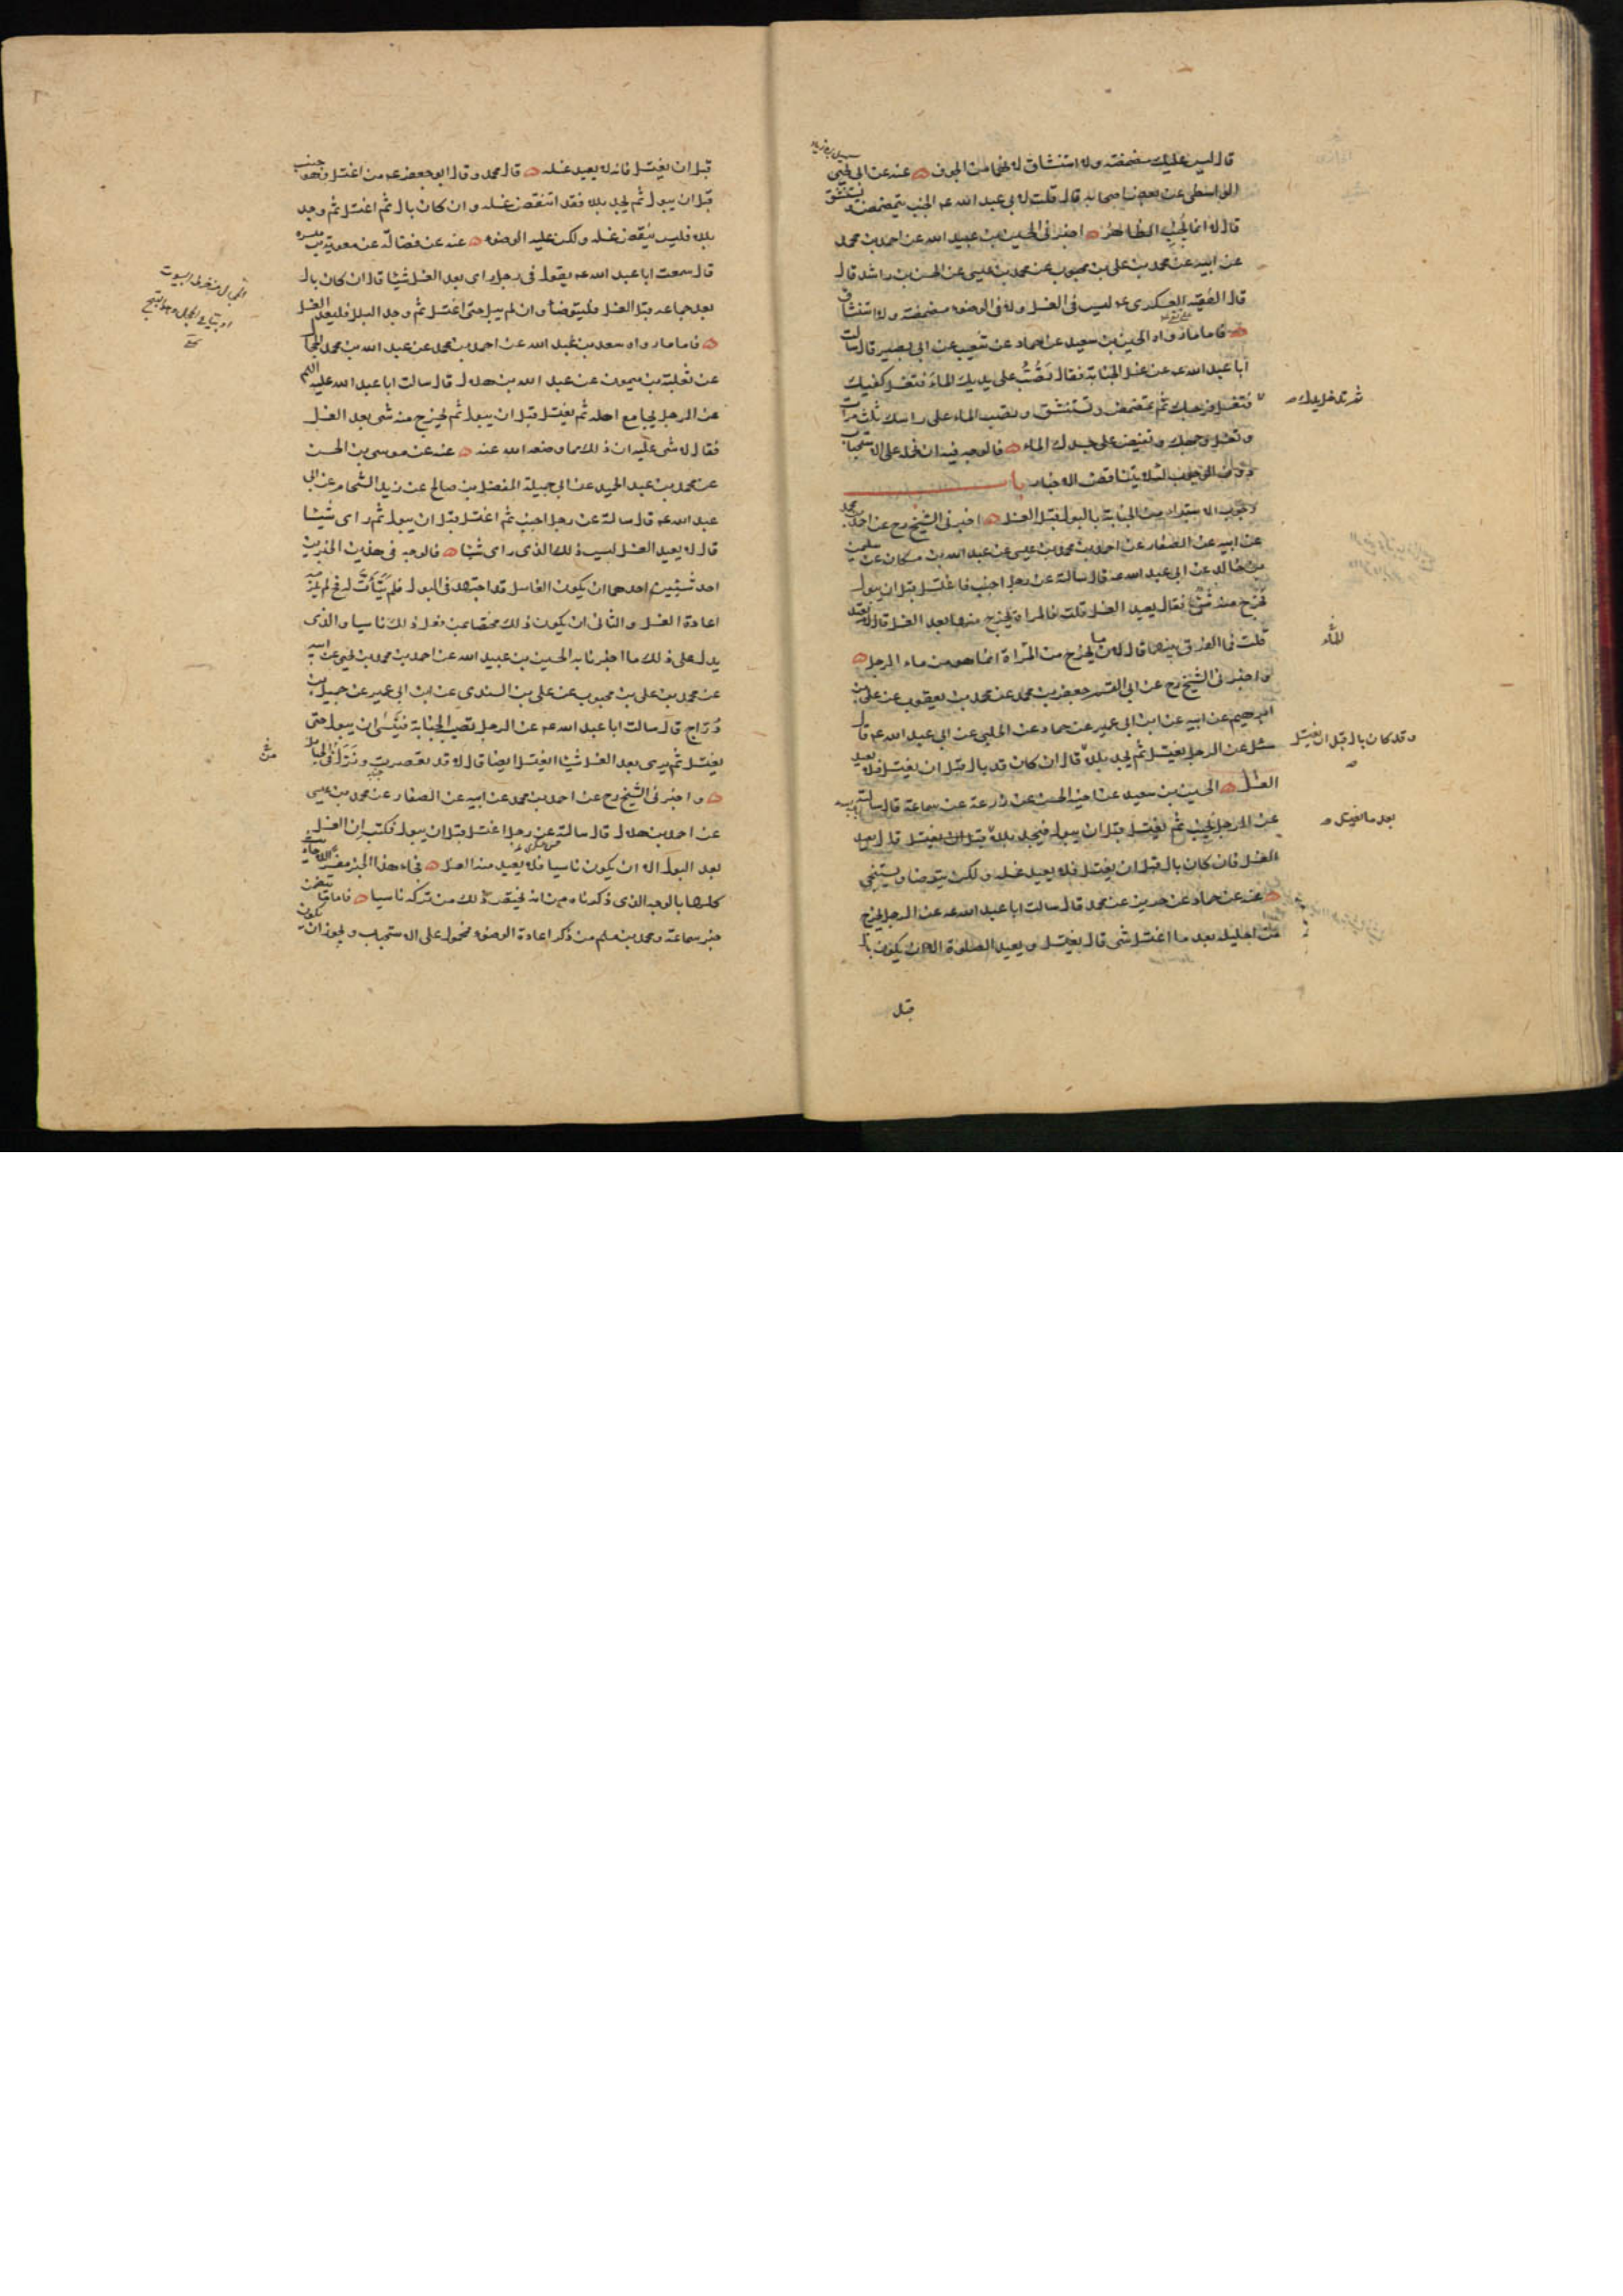 قال ليس عليك مضمضة ولا استنشاق لانهما من الجوف عنه عن ابي يحيى
الواسطي عن بعض اصحابه قال قلت لابي عبد الله ع الجنب يتمضمض ويستنشق
قال لا انما يجنب الظاهر اخبرني الحسين بن عبيد الله عن احمد بن محمد
عن ابيه عن محمد بن علي بن محبوب عن محمد بن عيسى عن الحسن بن راشد قال
قال الفقيه العسكري ع ليس في الغسل ولا في الوضوء مضمضة ولا استنشاق
فاما ما رواه الحسين بن سعيد عن حماد عن شعيب عن ابي بصير قال سالت
ابا عبد الله ع عن غسل الجنابة فقال تصب على يديك الماء فتغسل كفيك
ثم تدخل يدك
فتغسل فرجك ثم تمضمض وتستنشق وتصب الماء على راسك ثلث مرات
وتغسل وجهك وتفيض على جسدك الماء فالوجه فيه ان نحمله على الاستحباب
دون الوجوب لئلا يتناقض الاخبار باب
وجوب الاستبراء من الجنابة بالبول قبل الغسل اخبرني الشيخ رح عن احمد بن محمد
عن ابيه عن الصفار عن احمد بن محمد بن عيسى عن عبد الله بن مسكان عن سليمن
بن خالد عن ابي عبد الله ع قال سالته عن رجل اجنب فاغتسل قبل ان يبول
فخرج منه شئ فقال يعيد الغسل قلت فالمراة يخرج منها بعد الغسل قال لا تعيد
قلت فما الفرق بينهما قال لان ما يخرج من المراة انما هو من ماء الرجل
واخبرني الشيخ رح عن ابي القسم جعفر بن محمد عن محمد بن يعقوب عن علي بن
ابرهيم عن ابيه عن ابن ابي عمير عن حماد عن الحلبي عن ابي عبد الله ع قال
سئل عن الرجل يغتسل ثم يجد بللا قال ان كان قد بال قبل ان يغتسل فلا يعيد
وقد كان بال قبل ان يغتسل
الغسل الحسين بن سعيد عن اخيه الحسن عن زرعة عن سماعة قال سالته
عن الرجل يجنب ثم يغتسل قبل ان يبول فيجد بللا قبل ان يغتسل قال يعيد
بعد ما يغتسل
الغسل فان كان بال قبل ان يغتسل فلا يعيد غسله ولكن يتوضا ويستنجي
عنه عن حماد عن حريز عن محمد قال سالت ابا عبد الله ع عن الرجل يخرج
من احليله بعد ما اغتسل شئ قال يغتسل ويعيد الصلوة الا ان يكون بال
قبل
قبل ان يغتسل فانه لا يعيد غسله قال محمد وقال ابو جعفر ع من اغتسل وهو جنب
قبل ان يبول ثم يجد بللا فقد انتقض غسله وان كان بال ثم اغتسل ثم وجد
بللا فليس ينقض غسله ولكن عليه الوضوء عنه عن فضالة عن معوية بن ميسرة
قال سمعت ابا عبد الله ع يقول في رجل راى بعد الغسل شيئا قال ان كان بال
بعد جماعه قبل الغسل فليتوضأ وان لم يبل حتى اغتسل ثم وجد البلل فليعد الغسل
فاما ما رواه سعد بن عبد الله عن احمد بن محمد عن عبد الله بن محمد الحجال
عن ثعلبة بن ميمون عن عبد الله بن هلال قال سالت ابا عبد الله عليه السلم
عن الرجل يجامع اهله ثم يغتسل قبل ان يبول ثم يخرج منه شئ بعد الغسل
فقال لا شئ عليه ان ذلك مما وضعه الله عنه عنه عن موسى بن الحسن
عن محمد بن عبد الحميد عن ابي جميلة المفضل بن صالح عن زيد الشحام عن ابي
عبد الله ع قال سالته عن رجل اجنب ثم اغتسل قبل ان يبول ثم راى شيئا
قال لا يعيد الغسل ليس ذلك الذى راى شيئا فالوجه في هذين الخبرين
احد شيئين احدهما ان يكون الغاسل قد اجتهد في البول فلم يتأت له فح لم يلزمه
اعادة الغسل والثاني ان يكون ذلك مختصا بمن فعل ذلك ناسيا والذى
يدل على ذلك ما اخبرنا به الحسين بن عبيد الله عن احمد بن محمد بن يحيى عن ابيه
عن محمد بن علي بن محبوب عن علي بن السندي عن ابن ابي عمير عن جميل بن
دراج قال سالت ابا عبد الله ع عن الرجل تصيبه الجنابة فينسى ان يبول حتى
يغتسل ثم يرى بعد الغسل شيئا ايغتسل ايضا قال لا قد تعصرت ونزل من الحبائل
واخبرني الشيخ رح عن احمد بن محمد عن ابيه عن الصفار عن محمد بن عيسى
عن احمد بن هلال قال سالته عن رجل اغتسل قبل ان يبول فكتب ان الغسل
بعد البول الا ان يكون ناسيا فلا يعيد منه الغسل فجاء هذا الخبر مفسرا للاحاديث
كلها بالوجه الذى ذكرناه من انه يختص ذلك من تركه ناسيا فاما ما يتضمن
خبر سماعة ومحمد بن مسلم من ذكر اعادة الوضوء فمحمول على الاستحباب ويجوز ان يكون